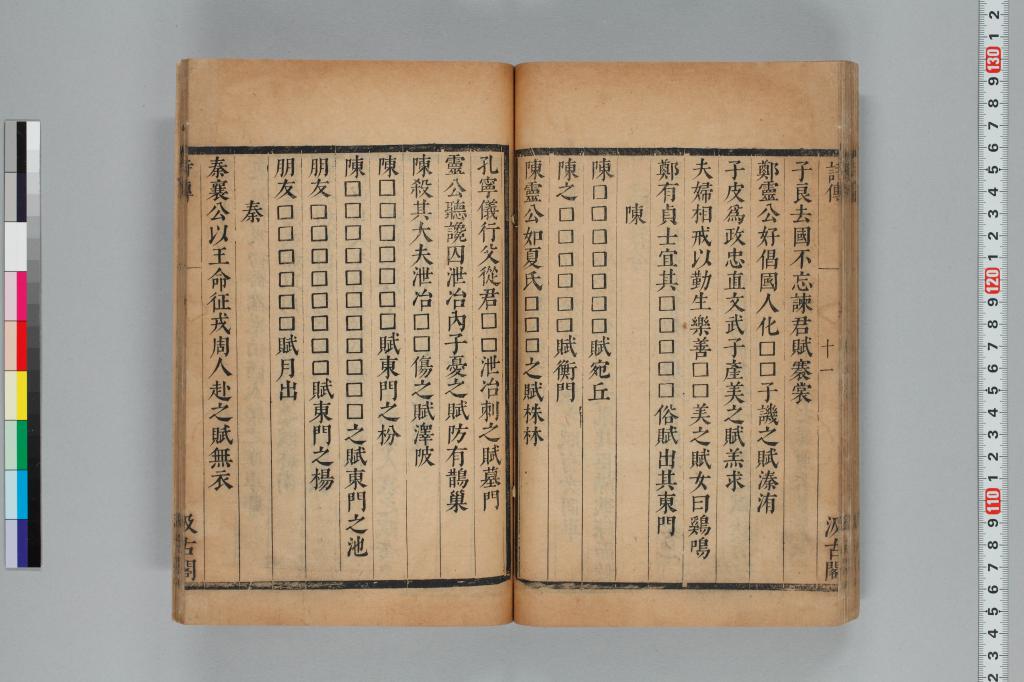 詩傳
十一
汲古閣
子良去國不忘諫君賦褰裳
鄭靈公好倡國人化□□子譏之賦溱洧
子皮爲政忠直文武子產美之賦羔求
夫婦相戒以勤生樂善□□美之賦女曰鷄鳴
鄭有貞士宜其□□□□□俗賦出其東門
陳
陳□□□□□□□賦宛丘
陳之□□□□□□賦衡門
陳靈公如夏氏□□□□之賦株林
孔寧儀行父從君□□泄冶刺之賦墓門
靈公聽讒囚泄冶內子憂之賦防有鵲巢
陳殺其大夫泄冶□□傷之賦澤陂
陳□□□□□□□賦東門之枌
陳□□□□□□□□□□□之賦東門之池
朋友□□□□□□□□賦東門之楊
朋友□□□□□□賦月出
秦
秦襄公以王命征戎周人赴之賦無衣
詩傳
一
汲古閣
130
120
110